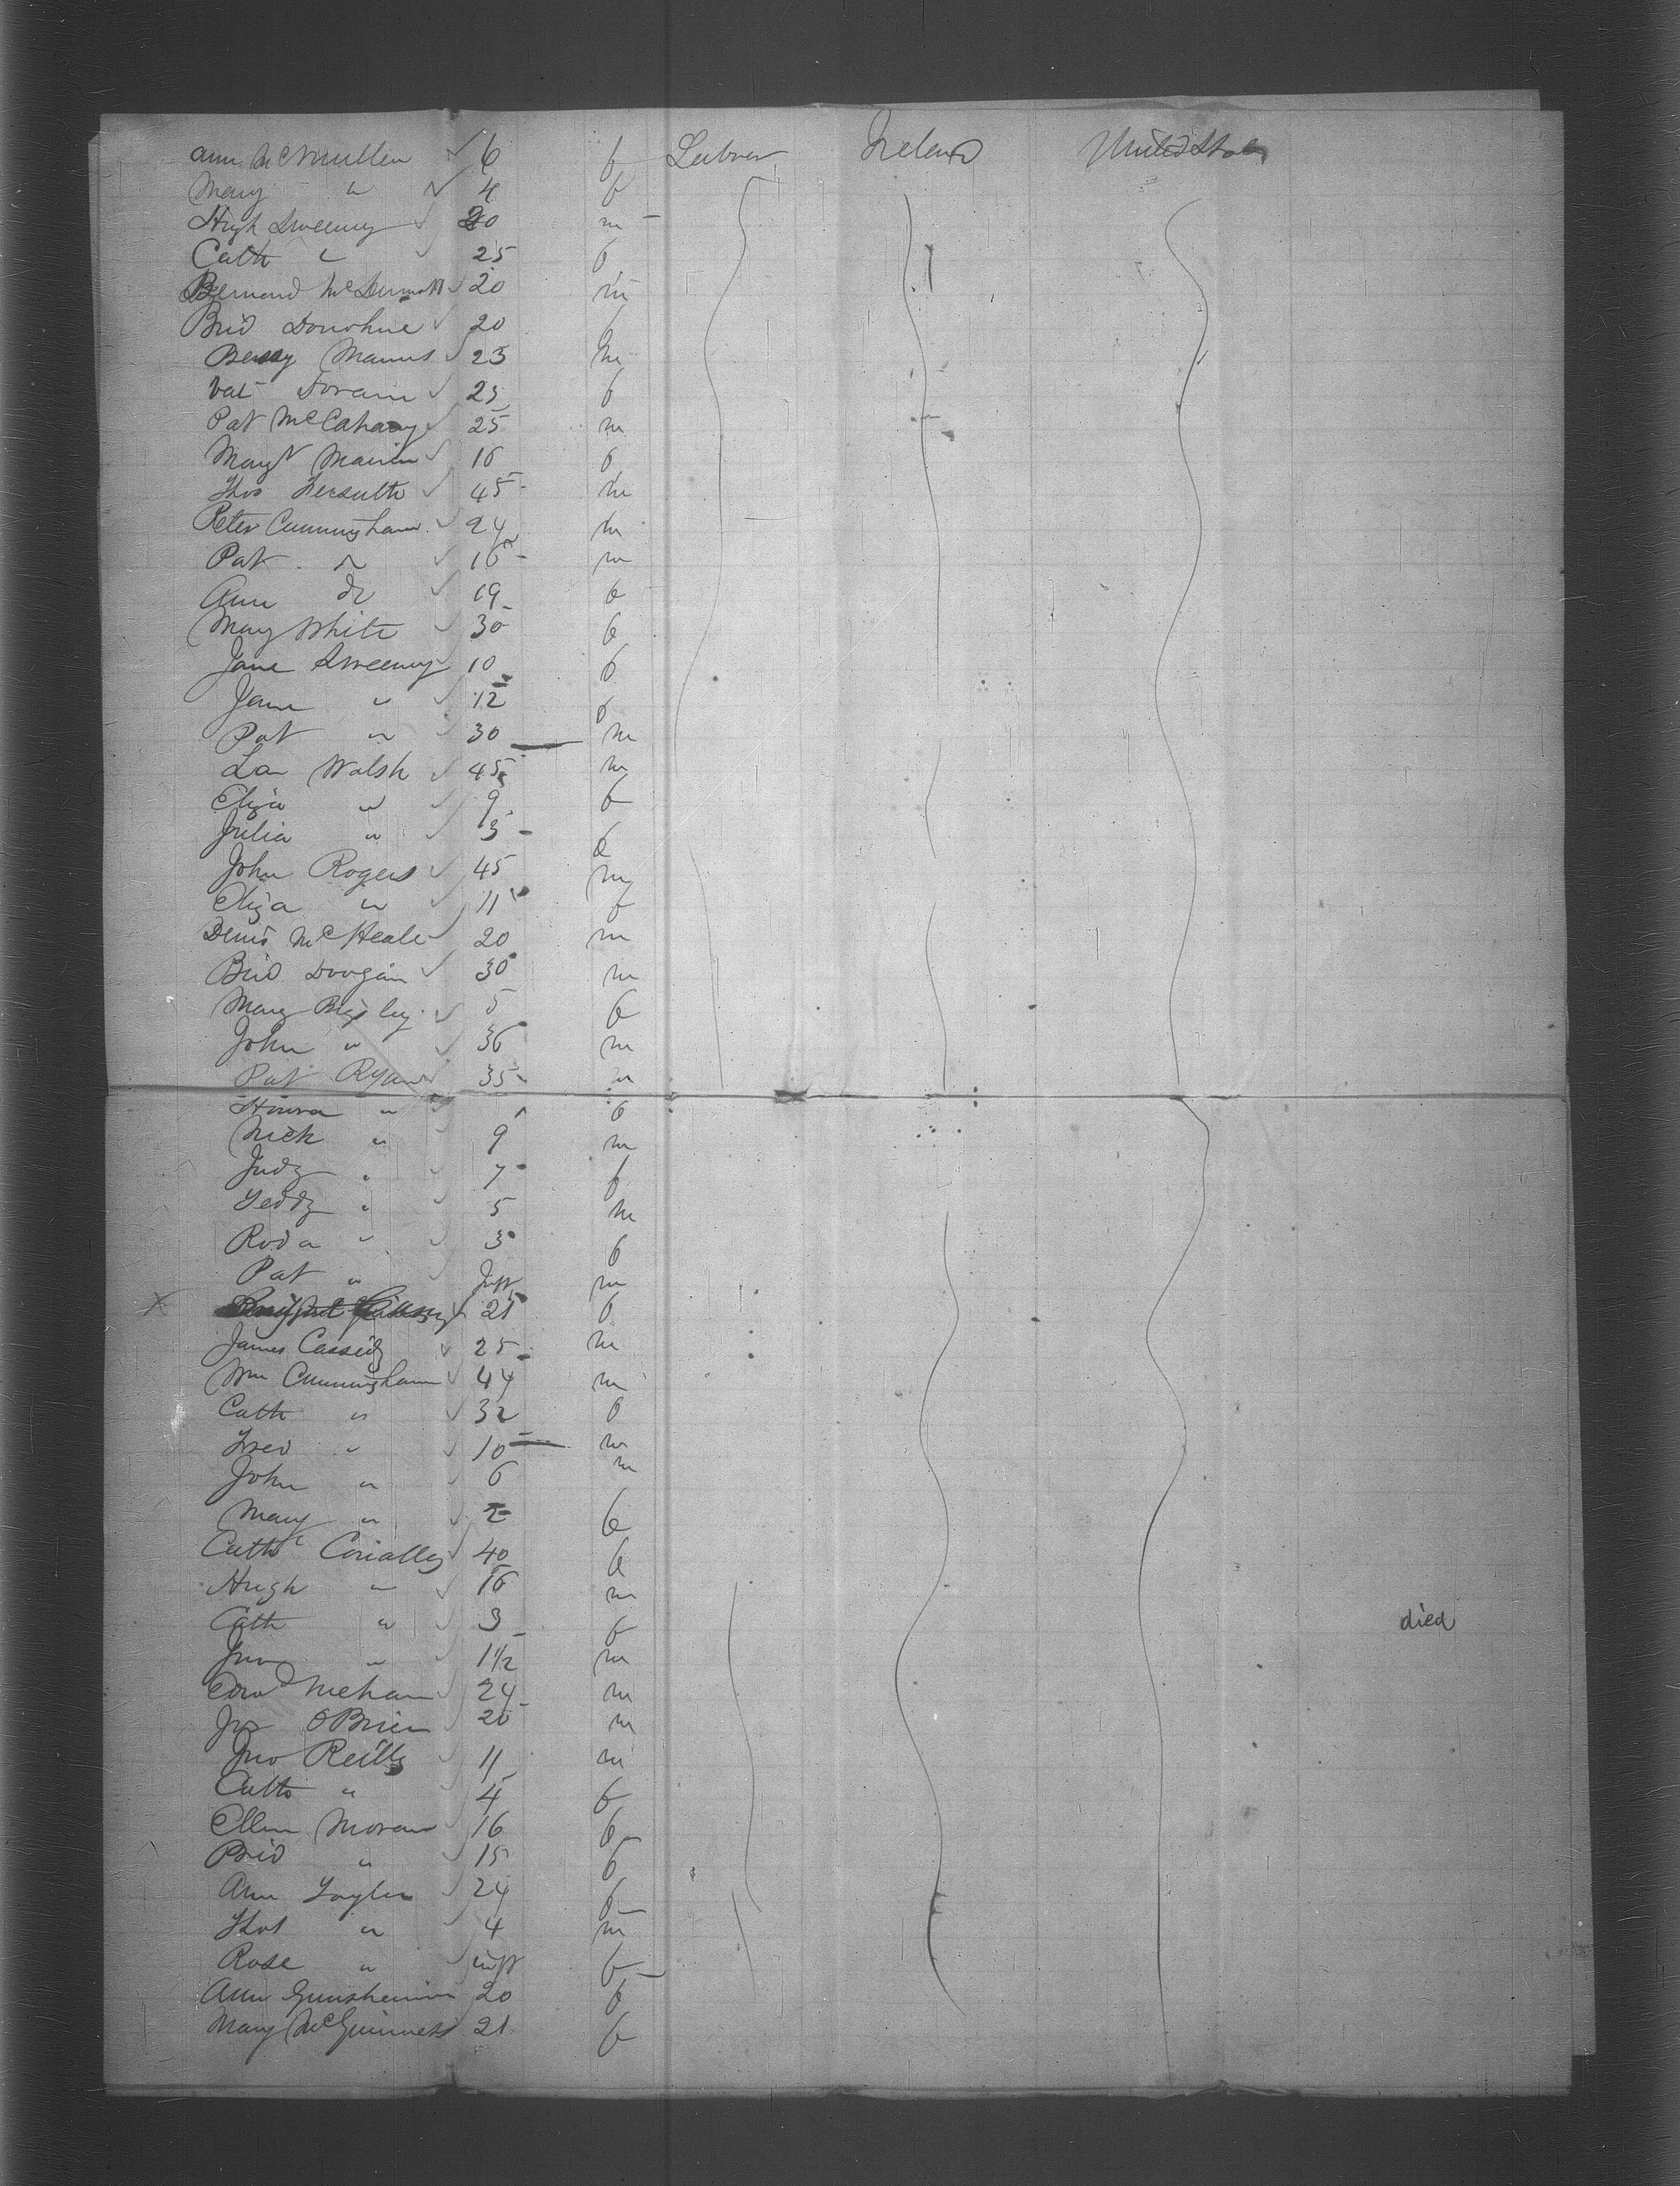 Ann McMullen 6 f Labour Ireland United States
Mary " 4 f
Hugh Sweeney 20 m
Cath " 25 f
Bernard McDermott 20 m
Brid Donohue 20 f
Manus 23 m
Doran 25 f
Pat McCahay 25 m
Margt 16 f
Thos 45 m
Peter Cunningham 24 m
Pat Do 16 m
Ann Do 19 f
Mary White 30 f
Jane Sweeney 10 f
Jane " 12 f
Pat " 30 m
Walsh 45 m
Eliza " 9 f
Julia " 3 f
John Rogers 45 m
Eliza " 11 f
Denis McHeale 20 m
Brid Doogan 30 m
Mary 5 f
John " 36 m
Pat Ryan 35 m
" f
Mick " 9 m
Judy " 7 f
Teddy " 5 m
Roda " 3 f
Pat " Inft m
X 21 f
James Cassidy 25 m
Wm Cunningham 44 m
Cath " 32 f
" 10 m
John " 6 m
Mary " 2 f
Cath Conally 40 f
Hugh " 16 m
Cath " 3 f died
Jno " 1 1/2 m
Edwd Mehan 24 m
Jas O'Brien 20 m
Jno Reilly 11 m
Cath " 4 f
Ellen Moran 16 f
Brid " 15 f
Ann Taylor 24 f
Thos " 4 m
Rose " inft f
Ann 20 f
Mary McGuinness 21 f